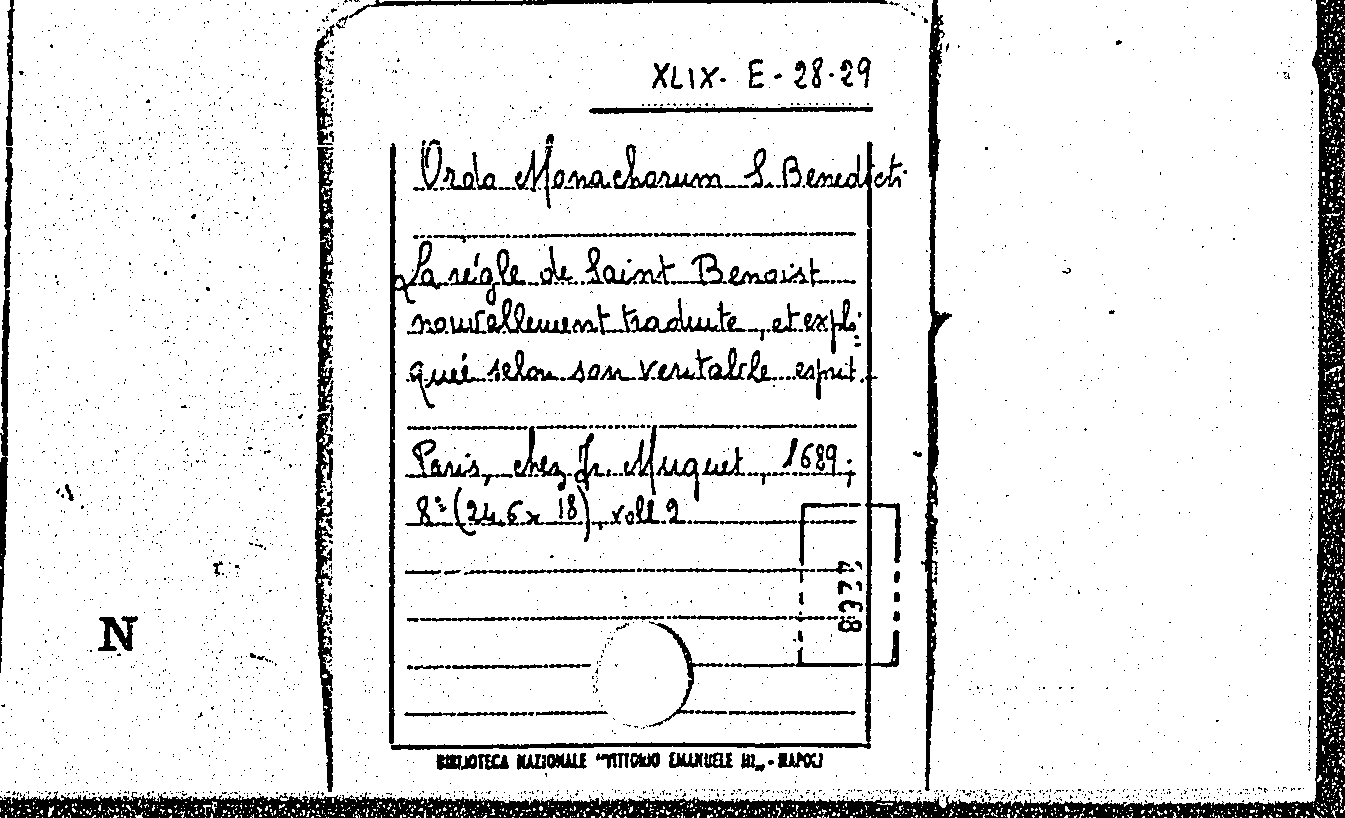 XLIX. E. 28-29
Ordo Monachorum S. Benedicti
La régle de Saint Benoist
nouvellement traduite, et expli
queé selon son veritable esprit.
Paris, chez Fr. Muguet, 1689;
8º (24,5 x 18), voll 2
N
BIBLIOTECA NAZIONALE "VITTORIO EMANUELE III" - NAPOLI